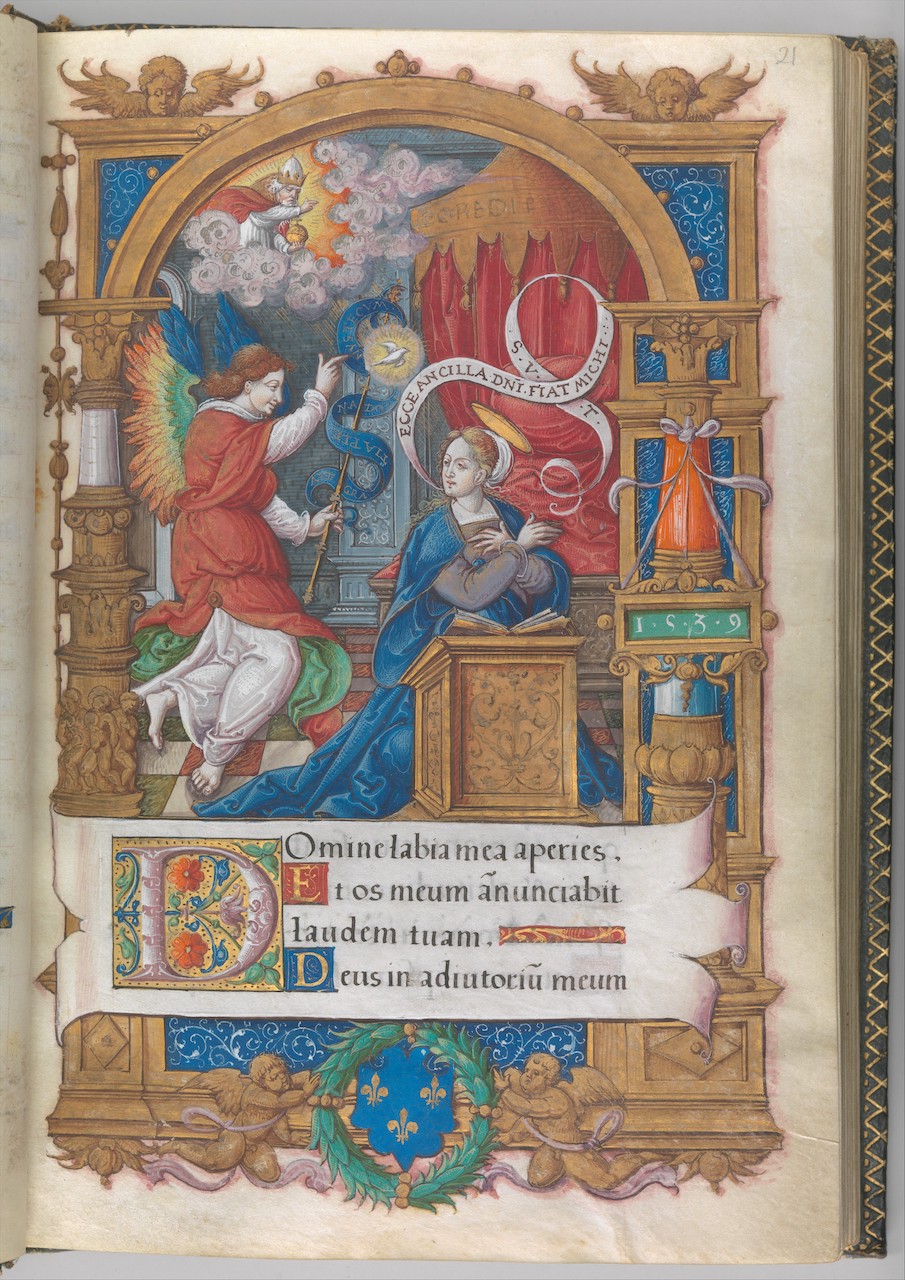 21
CREDIE
ECCE ANCILLA DNI. FIAT MICHI
S. V. T.
1·5·3·9
Domine labia mea aperies.
Et os meum añunciabit
laudem tuam.
Deus in adiutoriū meum